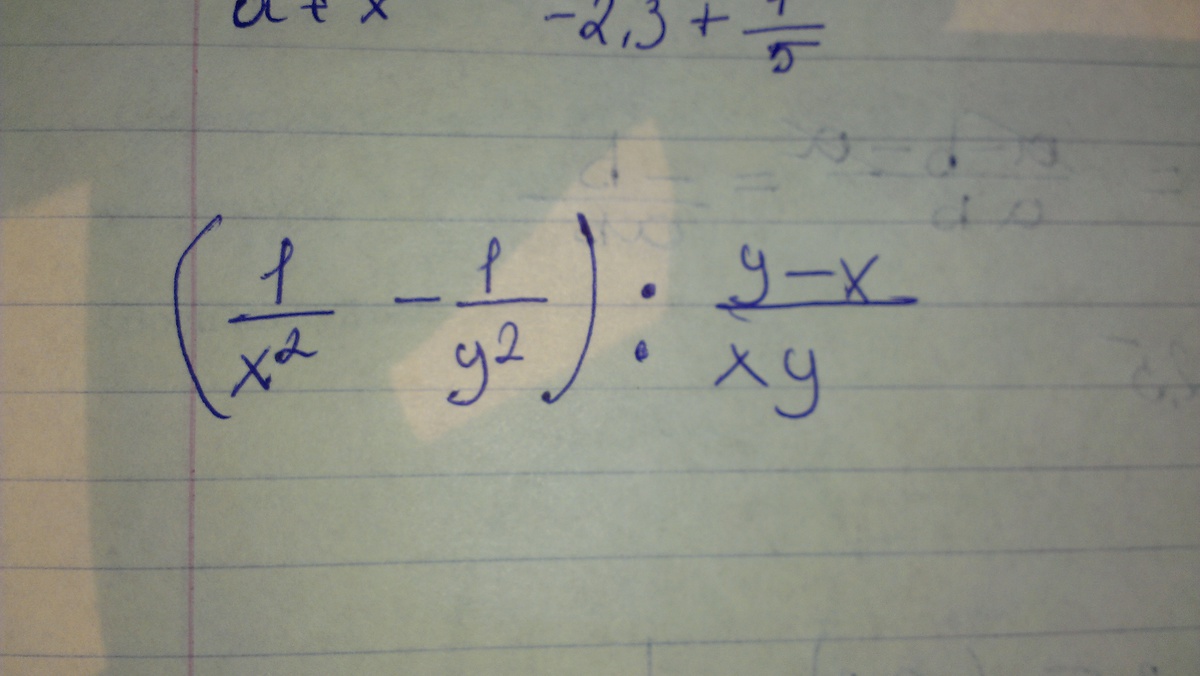 a + x   -2,3 + 1/5
(1/x² - 1/y²) : y-x/xy